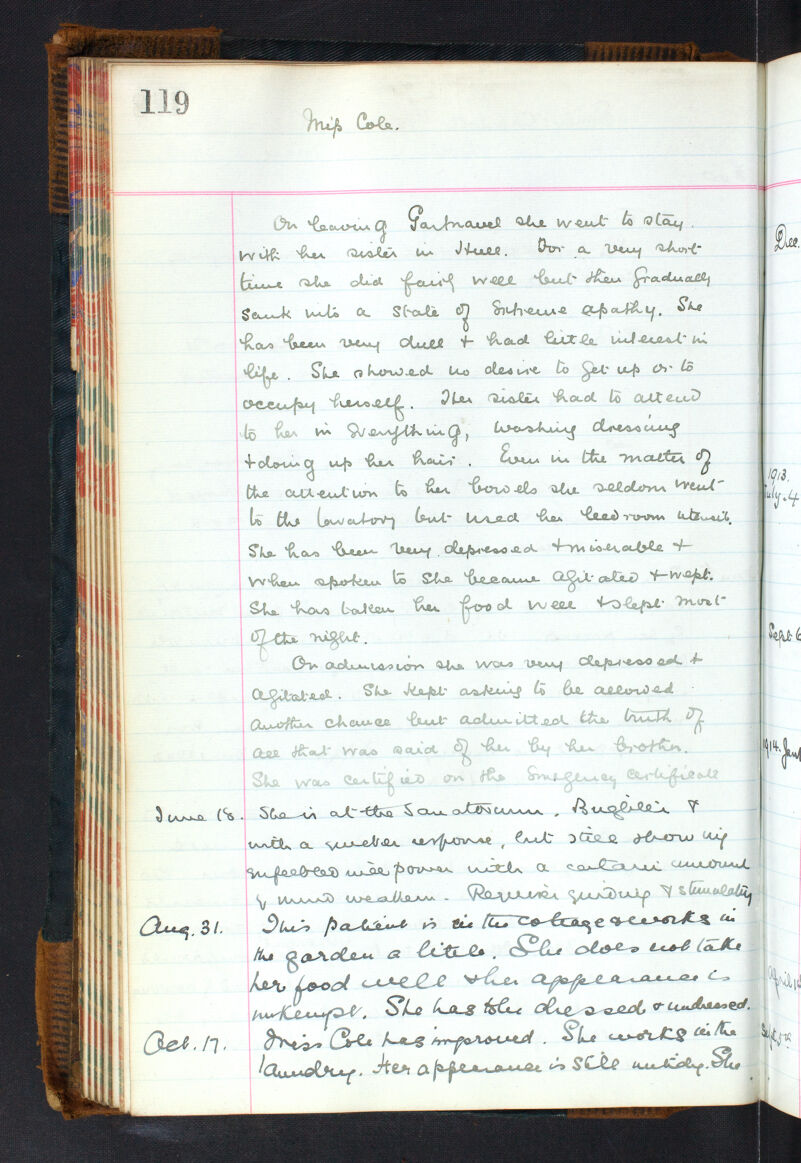 119
Miss Cole.
On leaving Gartnavel she went to stay
with her sister in Hull. For a very short
time she did fairly well but then gradually
sank into a state of extreme apathy. She
has been very dull + had little interest in
life. She showed no desire to get up or to
occupy herself. Her sister had to attend
to her in everything, washing dressing
+ doing up her hair. Even in the matter of
the attention to her bowels she seldom went
to the lavatory but used her bedroom utensil.
She has been very depressed + miserable +
when spoken to she became agitated + wept.
She has taken her food well + slept most
of the night.
On admission she was very depressed +
agitated. She kept asking to be allowed
another chance but admitted the truth of
all that was said of her by her brother.
She was certified on the Emergency certificate
June 18. She is at the Sanatorium. Brighter &
with a quicker response, but still showing
enfeebled will power with a certain amount
of mind weakness. Requires guiding & stimulating
Aug. 31. This patient is in the cottage & works in
the garden a little. She does not take
her food well & her appearance is
unkempt. She has to be dressed & undressed.
Oct. 17. Miss Cole has improved. She works in the
laundry. Her appearance is still untidy. She
Dec.
1913.
July 4
Sept 6
1914. Jan
April
Sept.